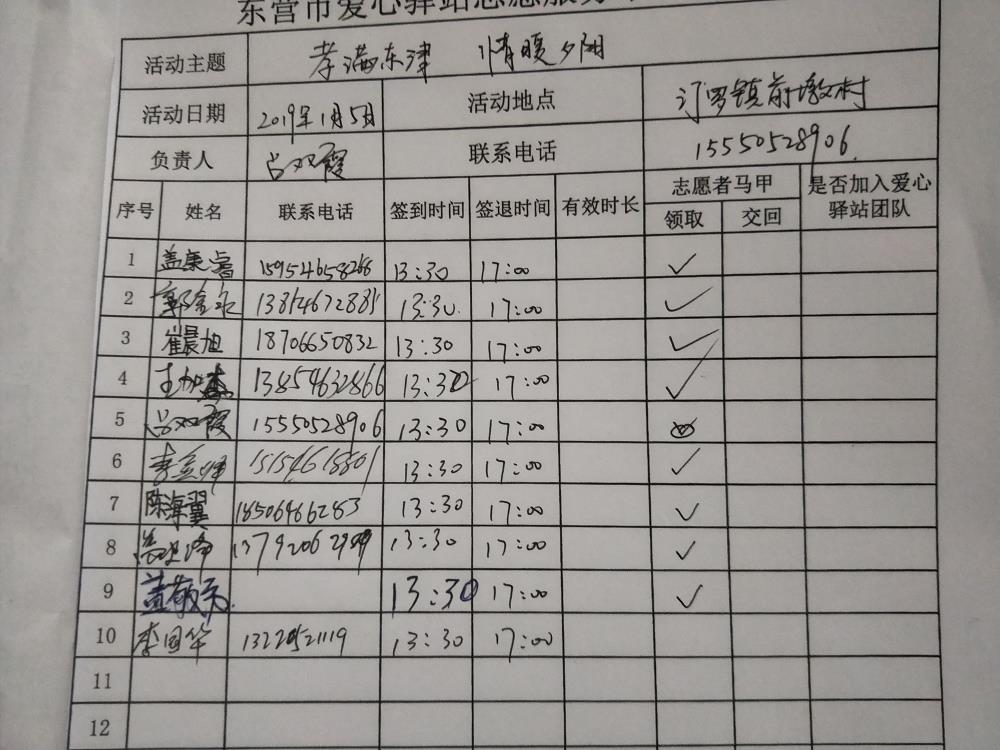 东营市爱心驿站志愿服务
活动主题 孝满东津 情暖夕阳
活动日期 2019年1月5日 活动地点 汀罗镇前墩村
负责人 吕双霞 联系电话 15550528906
序号 姓名 联系电话 签到时间 签退时间 有效时长 志愿者马甲 是否加入爱心
领取 交回 驿站团队
1 盖康 15954658268 13:30 17:00 ✓
2 13:30 17:00 ✓
3 崔晨旭 18706650832 13:30 17:00 ✓
4 13854632866 13:30 17:00 ✓
5 吕双霞 15550528906 13:30 17:00
6 13:30 17:00 ✓
7 陈海翼 18506466283 13:30 17:00 ✓
8 13:30 17:00 ✓
9 盖敬 13:30 17:00 ✓
10 李国华 13220521119 13:30 17:00
11
12